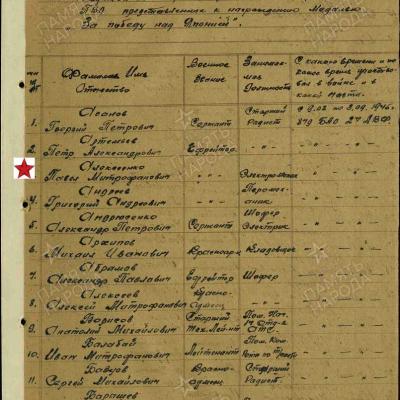 ТБО представленных к награждению Медалью
"За победу над Японией".
Фамилия Имя Отчество
Военное звание
Занимаемая должность
С какого времени и по какое время участвовал в войне и в какой части.
Асапов
1. Георгий Петрович Сержант Старший Радист С 9.08 по 3.09.1945.
879 БАО 2й АВФ.
Артемьев
2. Петр Александрович Ефрейтор
Алексеенко
Павел Митрофанович Электромеханик
Андреев
4. Григорий Андреевич
Андрюсенко
5. Александр Петрович Сержант Шофер Электрик
Архипов
6. Михаил Иванович Красноарм Кладовщик
Абрамов
7. Александр Павлович Ефрейтор Шофер
Алексеев
8. Алексей Митрофанович Красноармеец
Борисов
9. Анатолий Михайлович Старший Тех. Лей-нт Пом. Нач.
Балабай
10. Иван Митрофанович Лейтенант Пом. Ком.
Бавров
11. Сергей Михайлович Красноармеец Старший Радист.
Барашев
ПАМЯТЬ НАРОДА